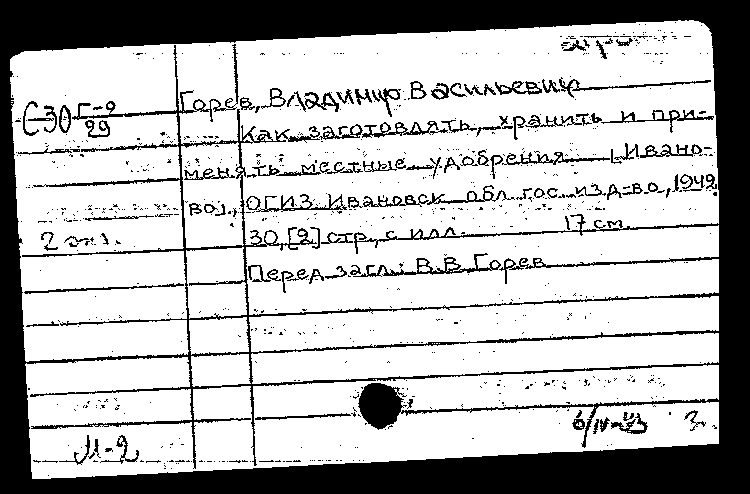 С30 Г-9
29
Горев, Владимир Васильевич
Как заготовлять, хранить и при-
менять местные удобрения. [Ивано-
во], ОГИЗ. Ивановск. обл. гос. изд-во, 1949.
2 экз.
30, [2] стр., с илл. 17 см.
Перед загл.: В.В. Горев
М-9
3.